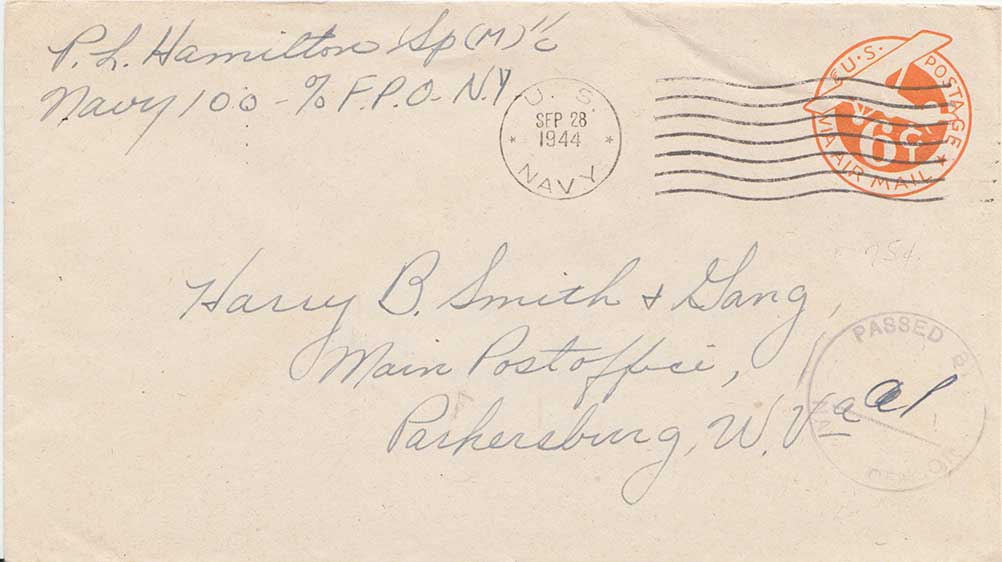 P. L. Hamilton Sp(M) 1/c
Navy 100 - % F.P.O. N.Y.
U. S.
SEP 28
1944
NAVY
U.S. POSTAGE
6¢
VIA AIR MAIL
75¢.
Harry B. Smith & Gang,
Main Postoffice,
Parkersburg, W. Va
PASSED BY
NAVAL CENSOR